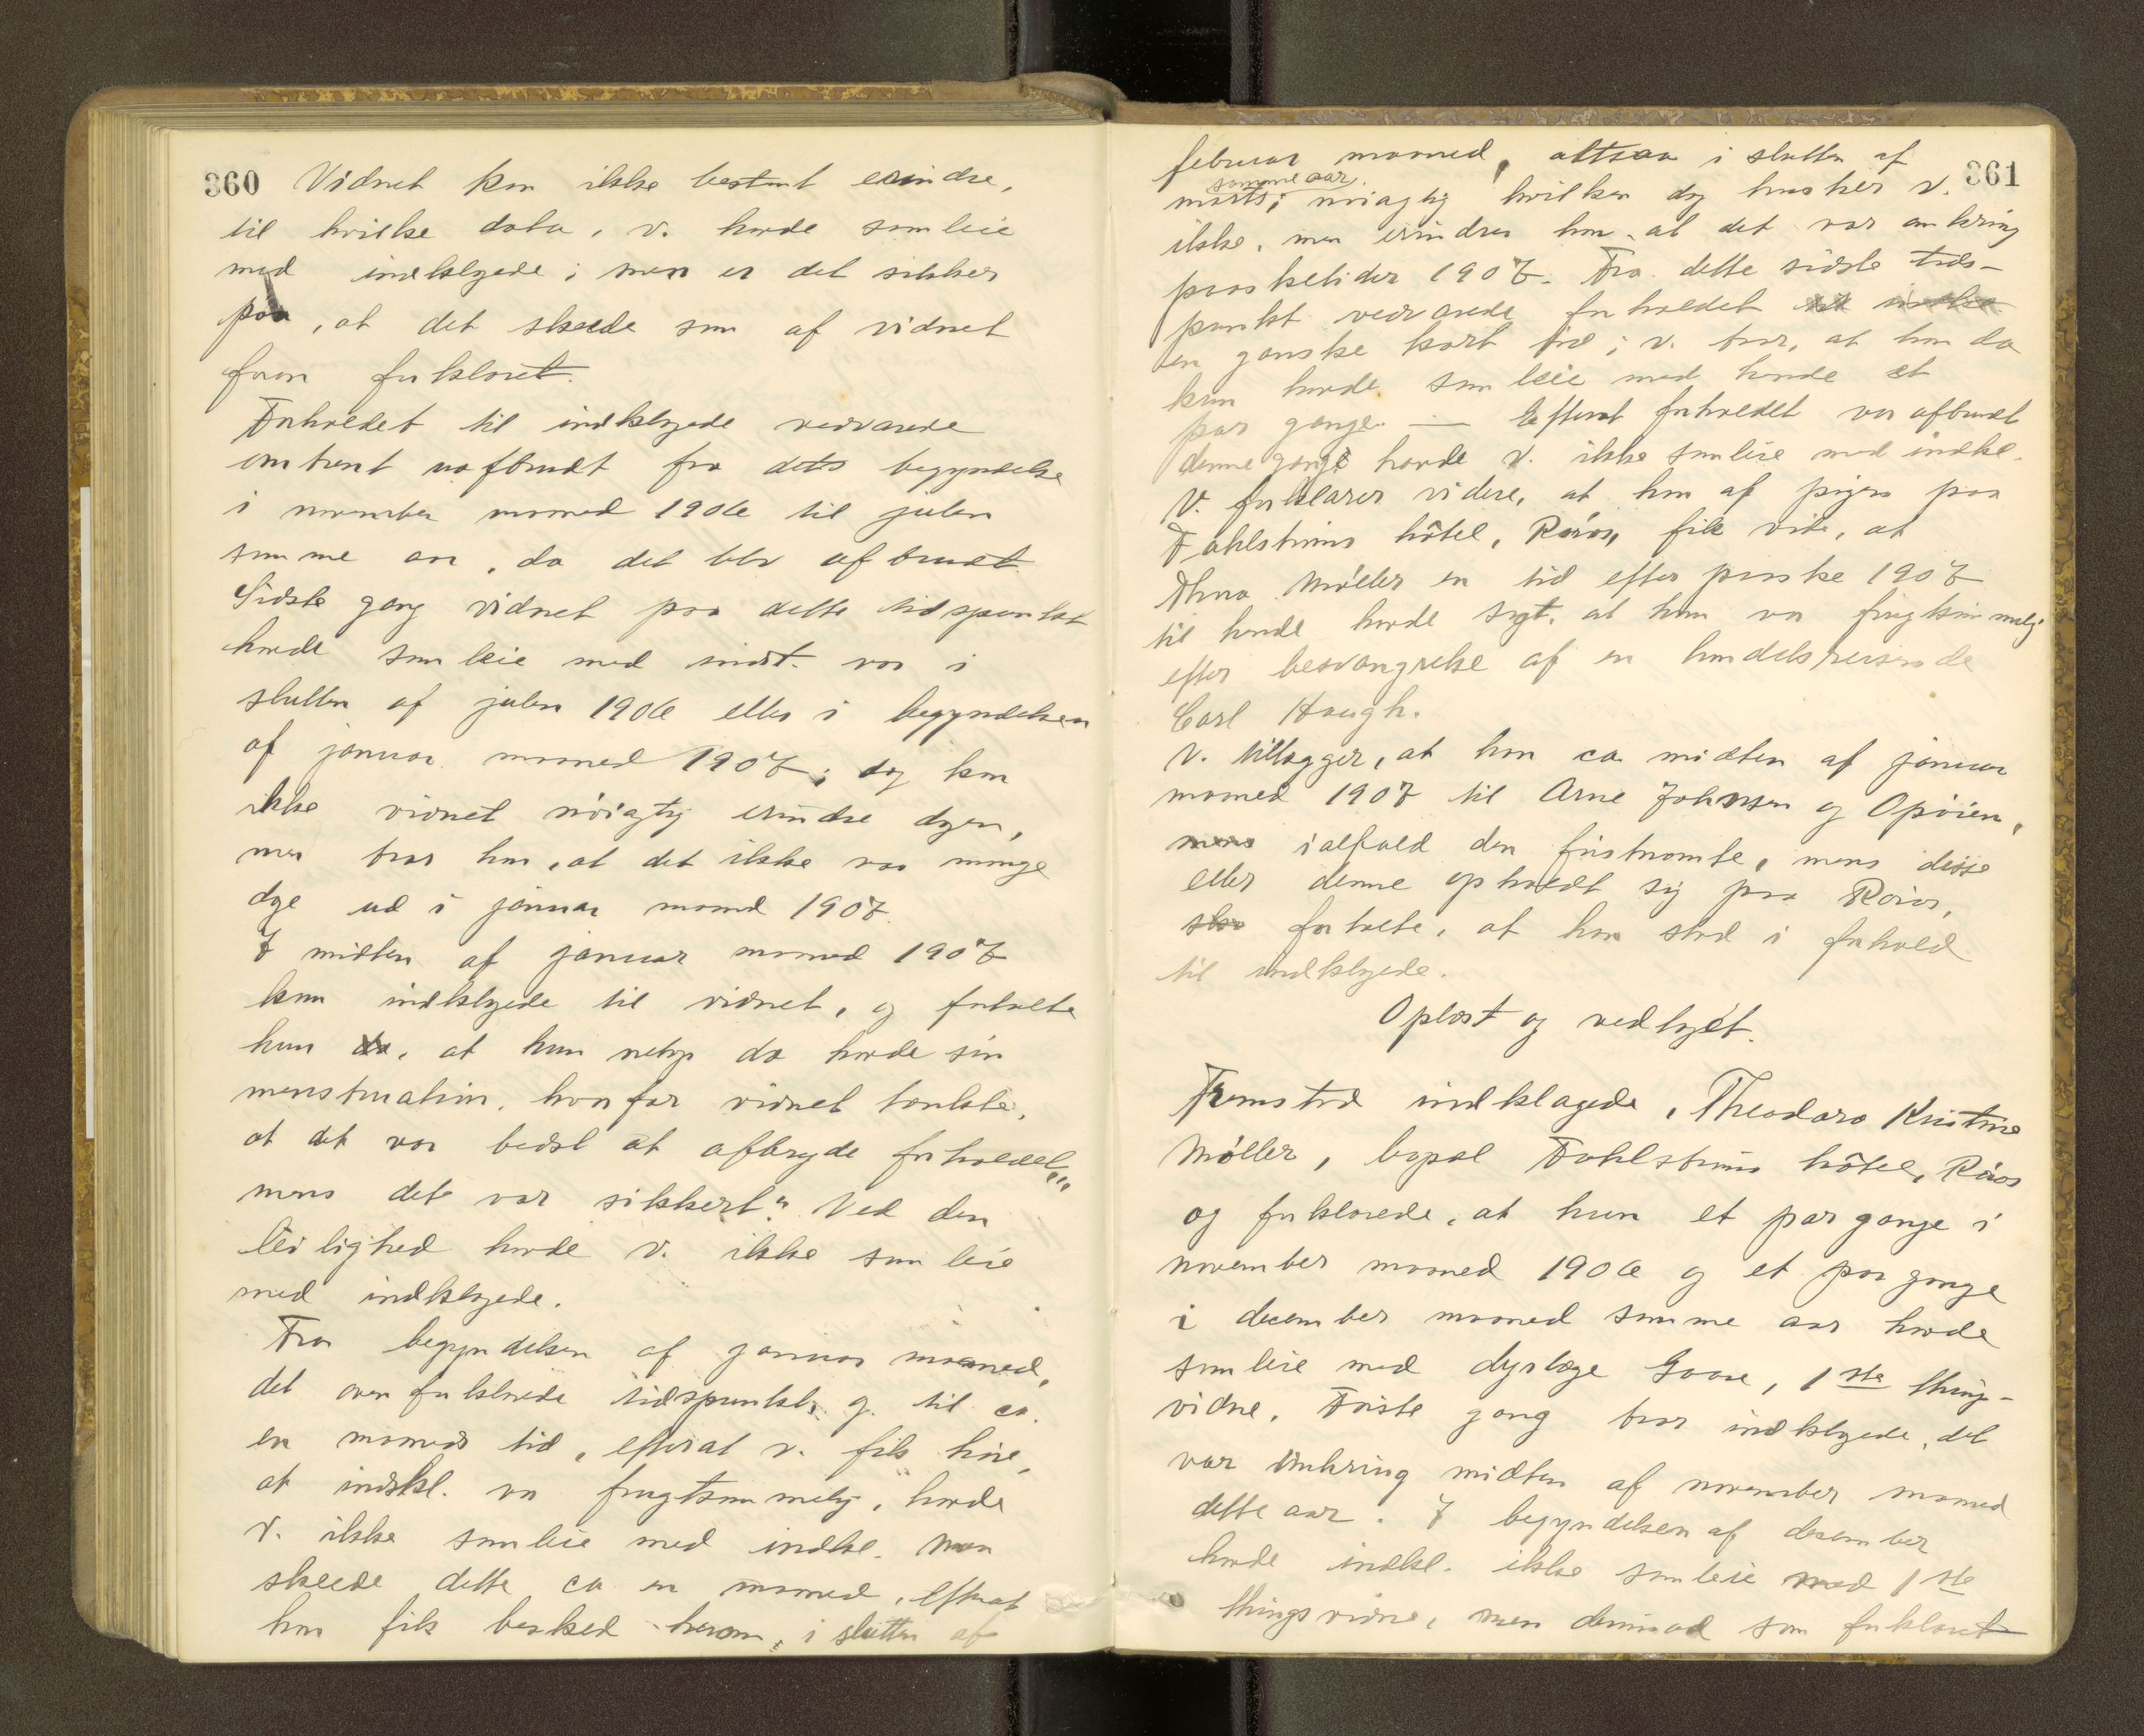 360 Vidnet kan ikke bestemt erindre,
til hvilke data, v. havde samleie
med indklagede; men er det sikker
paa, at det skeede som af vidnet
foran forklaret.
Forholdet til indklagede vedvarede
omtrent uafbrudt fra dets begyndelse
i november maaned 1906 til julen
samme aar, da det blev afbrudt.
Sidste gang vidnet paa dette tidspunkt
havde samleie med indst. var i
slutten af julen 1906 eller i begyndelsen
af januar maaned 1907; dog kan
ikke vidnet nöiagtig erindre dagen,
men tror han, at det ikke var mange
dage ud i januar maaned 1907.
I midten af januar maaned 1907
kom indklagede til vidnet, og fortalte
hun da, at hun netop da havde sin
menstruation, hvorfor vidnet tænkte,
at det var bedst at afbryde forholdet,
"mens det var sikkert". Ved den
leilighed havde v. ikke samleie
med indklagede.
Fra begyndelsen af januar maaned,
det ovenforklarede tidspunkt, og til ca.
en maaneds tid, efterat v. fik høre,
at indkl. var frugtsommelig, havde
v. ikke samleie med indkl. Men
skeede dette ca en maaned, efterat
han fik besked herom, i slutten af
361
februar maaned, altsaa i slutten af
marts samme aar; nöiagtig hvilken dag husker v.
ikke, men erindrer han, at det var omkring
paasketider 1907. Fra dette sidste tids-
punkt vedvarede forholdet
en ganske kort tid; v. tror, at han da
kun havde samleie med hende et
par gange. — Efterat forholdet var afbrudt
denne gang havde v. ikke samleie med indkl.
V. forklarer videre, at han af pigen paa
Fahlströms hôtel, Röros, fik vite, at
Thora Möller en tid efter paaske 1907
til hende havde sagt, at hun var frugtsommelig
efter besvangrelse af en handelsreisende
Carl Haugh.
V. tillægger, at han ca midten af januar
maaned 1907 til Arne Johnsen og Opöien,
mens ialfald den förstnævnte, mens disse
eller denne opholdt sig paa Röros,
fortalte, at han stod i forhold
til indklagede.
Oplæst og vedtaget.
Fremstod indklagede, Theodora Kristine
Möller, bopæl Fahlströms hôtel, Röros
og forklarede, at hun et par gange i
november maaned 1906 og et par gange
i december maaned samme aar havde
samleie med dyrlæge Gaare, 1ste thing-
vidne. Förste gang tror indklagede, det
var omkring midten af november maaned
dette aar. I begyndelsen af december
havde indkl. ikke samleie med 1ste
thingsvidne, men derimod som forklaret